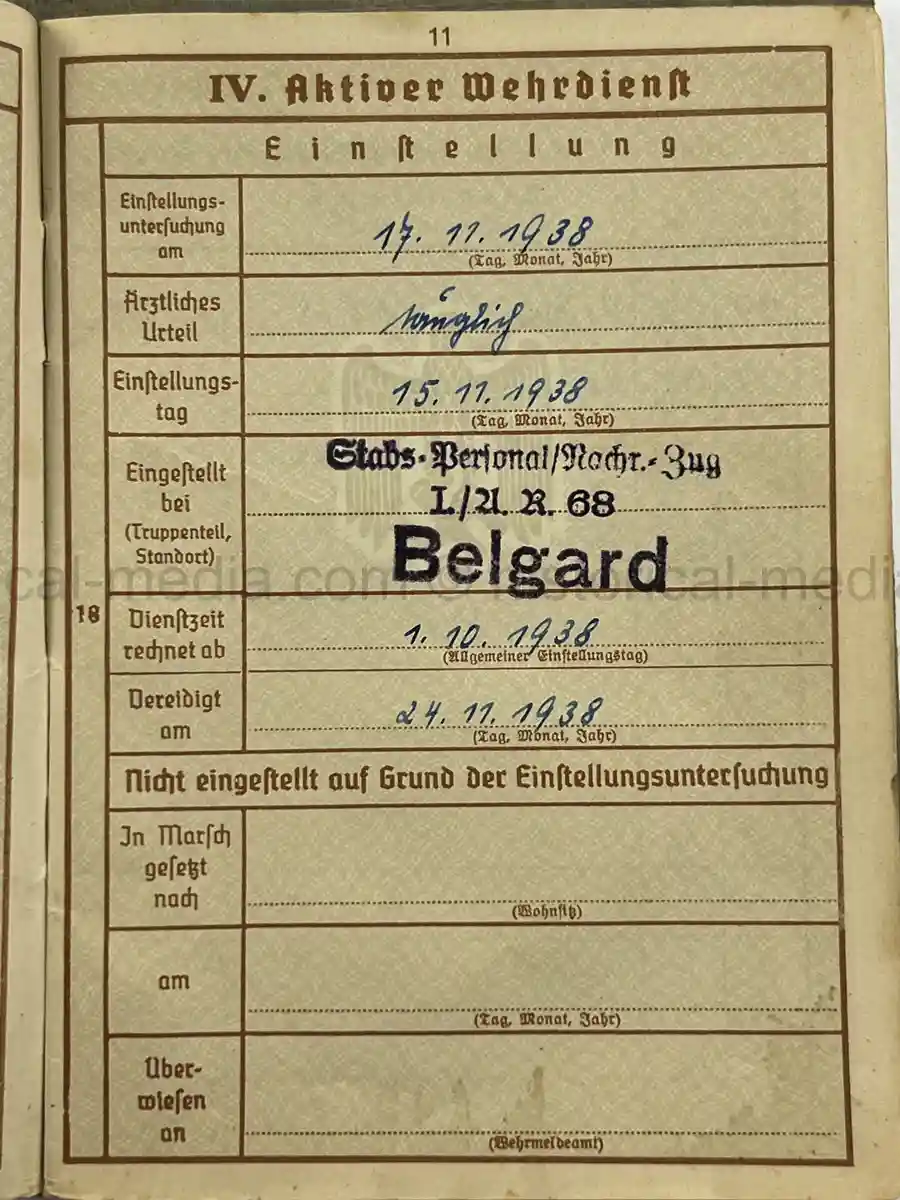 11
IV. Aktiver Wehrdienst
Einstellung
Einstellungs-
untersuchung
am
17. 11. 1938
(Tag, Monat, Jahr)
Ärztliches
Urteil
tauglich
Einstellungs-
tag
15. 11. 1938
(Tag, Monat, Jahr)
Eingestellt
bei
(Truppenteil,
Standort)
Stabs-Personal/Nachr.-Zug
I./A. R. 68
Belgard
18
Dienstzeit
rechnet ab
1. 10. 1938
(Allgemeiner Einstellungstag)
Vereidigt
am
24. 11. 1938
(Tag, Monat, Jahr)
Nicht eingestellt auf Grund der Einstellungsuntersuchung
In Marsch
gesetzt
nach
(Wohnsitz)
am
(Tag, Monat, Jahr)
Über-
wiesen
an
(Wehrmeldeamt)